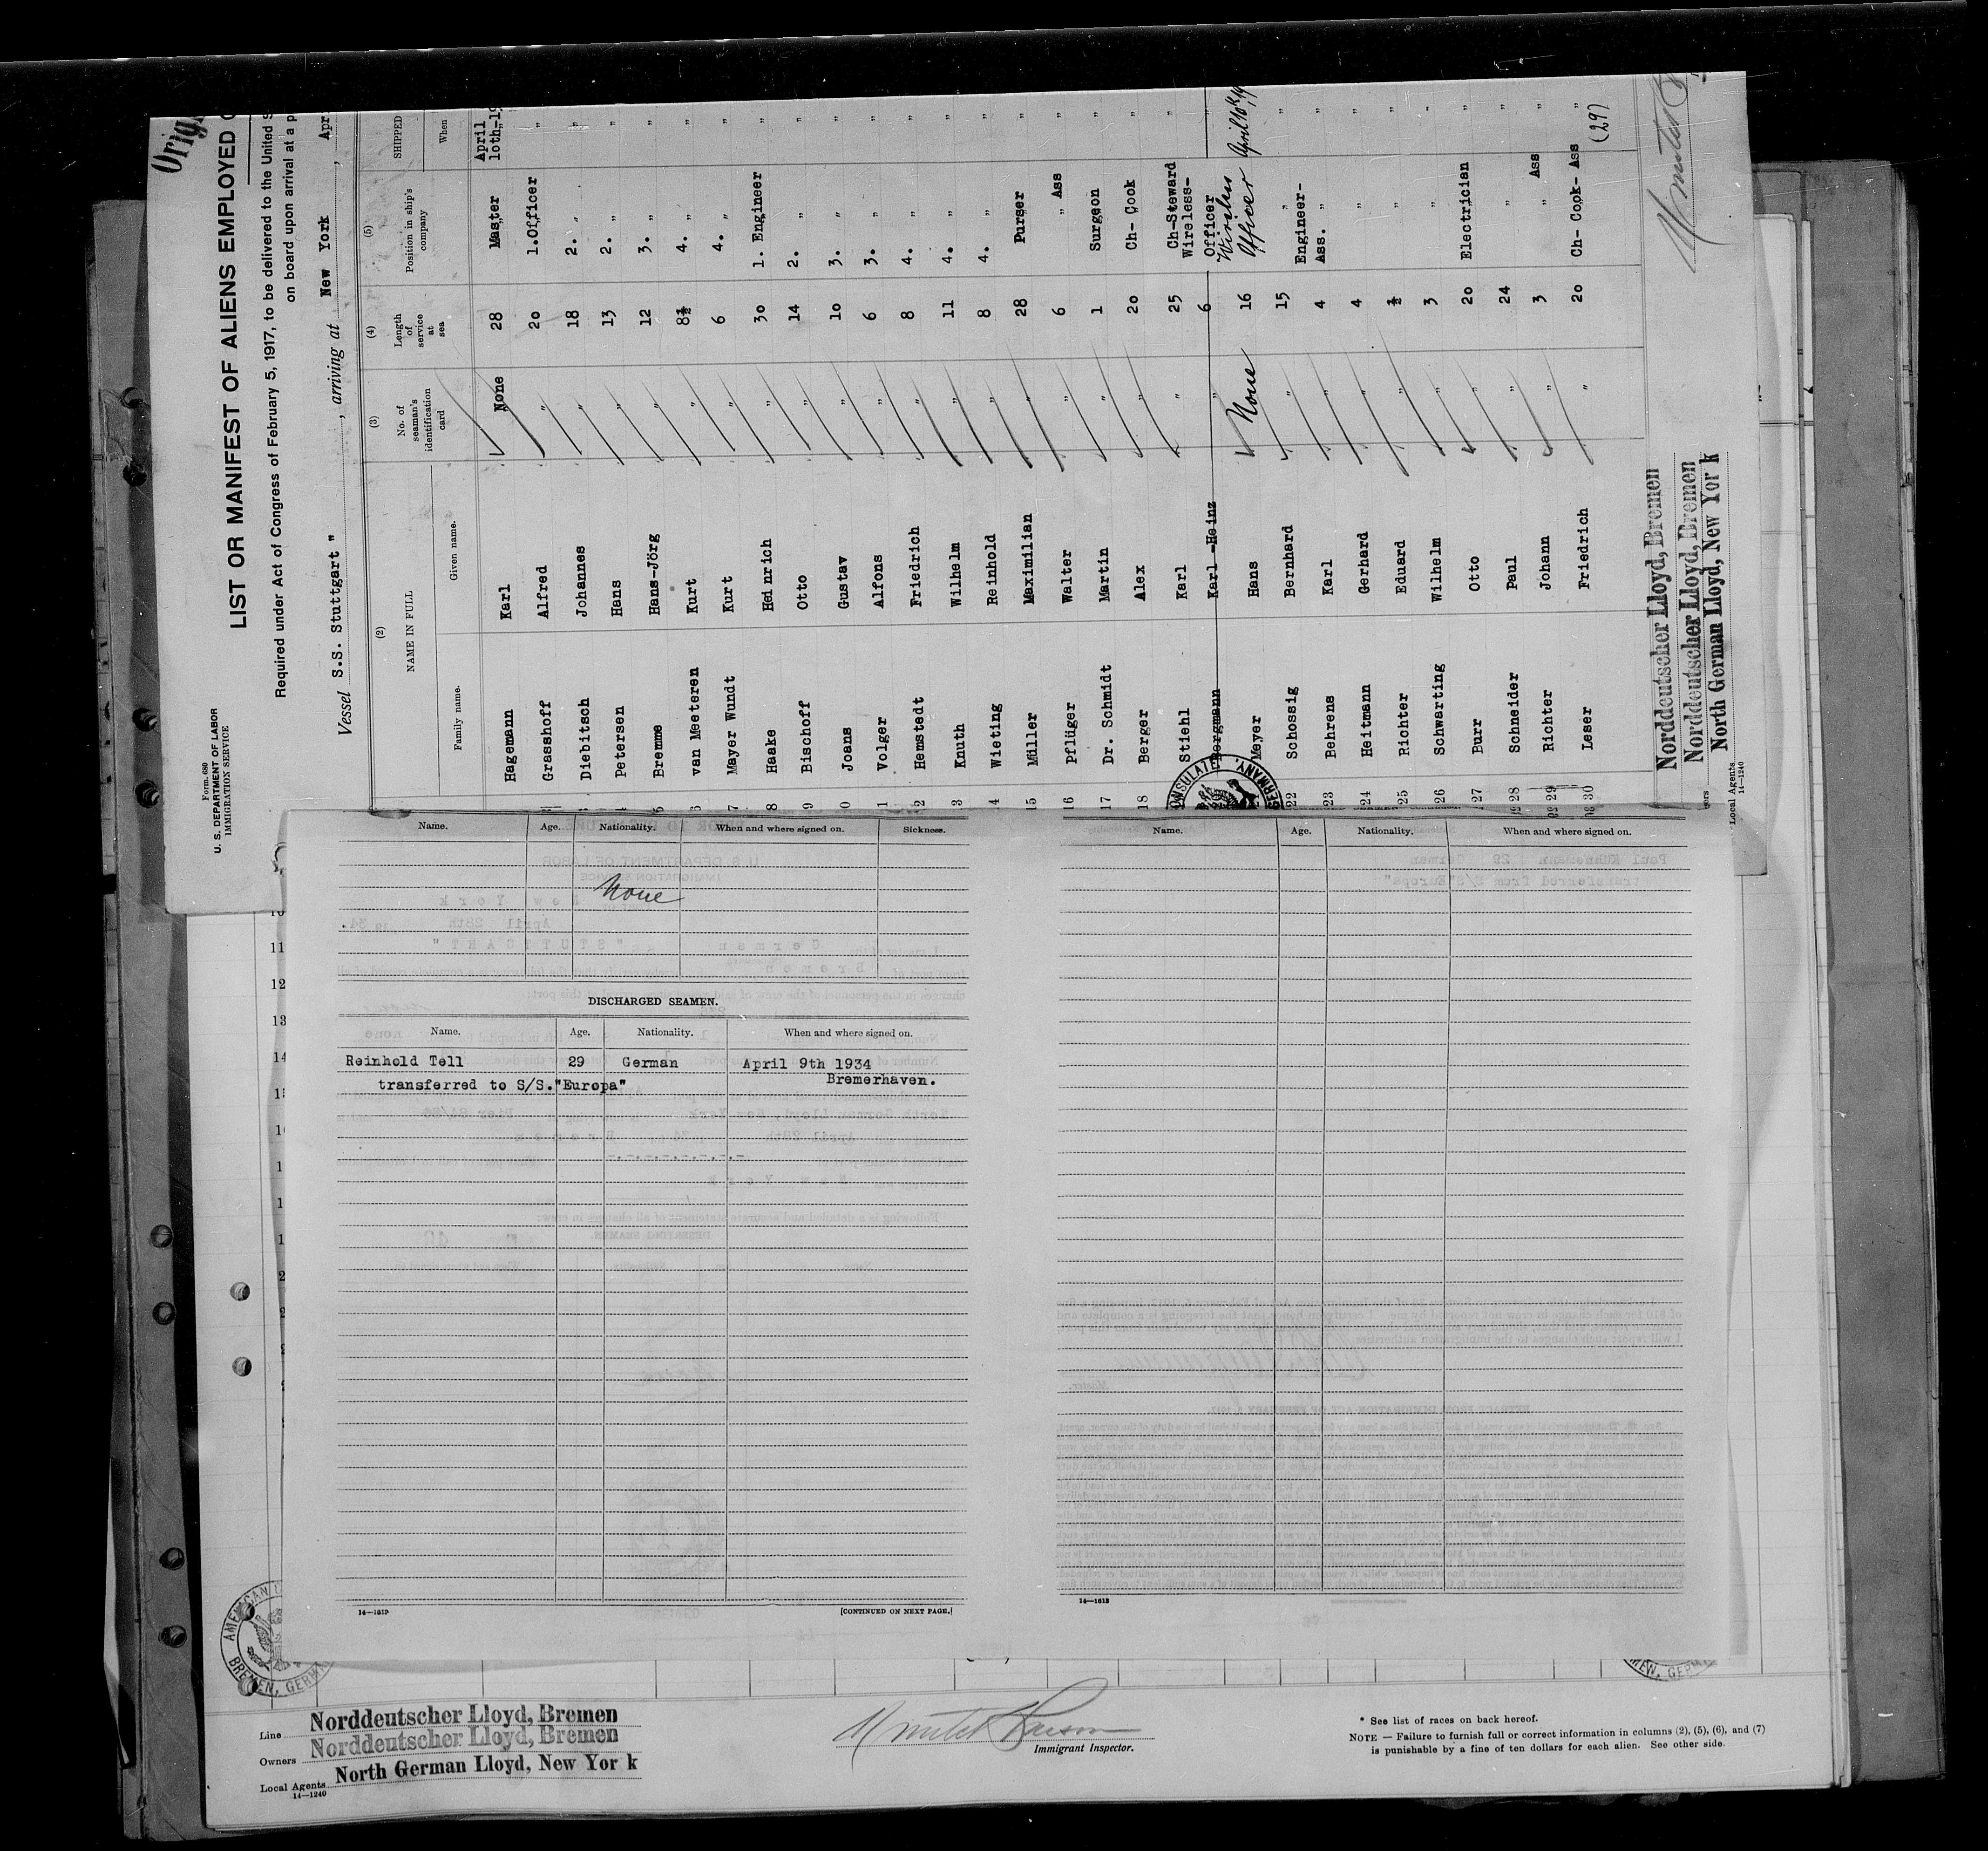 Form 680
U. S. DEPARTMENT OF LABOR
IMMIGRATION SERVICE
LIST OR MANIFEST OF ALIENS EMPLOYED
Required under Act of Congress of February 5, 1917, to be delivered to the United
on board upon arrival at a
Vessel S.S. Stuttgart ", arriving at New York, Apr
(2) (3) (4) (5)
NAME IN FULL No. of seaman's identification card Length of service at sea Position in ship's company SHIPPED
Family name. Given name. When
Hagemann Karl None 28 Master April 10th-19
Grasshoff Alfred " 20 1.Officer "
Diebitsch Johannes " 18 2. " "
4 Petersen Hans " 13 2. " "
5 Bremme Hans-Jörg " 12 3. " "
6 van Meeteren Kurt " 8½ 4. " "
7 Mayer Wundt Kurt " 6 4. " "
8 Haake Heinrich " 30 1. Engineer "
9 Bischoff Otto " 14 2. " "
0 Joans Gustav " 10 3. " "
1 Volger Alfons " 6 3. " "
2 Hemstedt Friedrich " 8 4. " "
3 Knuth Wilhelm " 11 4. " "
14 Wieting Reinhold " 8 4. " "
15 Müller Maximilian " 28 Purser "
16 Pflüger Walter " 6 " Ass "
17 Dr. Schmidt Martin " 1 Surgeon "
18 Berger Alex " 20 Ch- Cook "
Stiehl Karl " 25 Ch-Steward "
Bergmann Karl -Heinz " 6 Wireless-Officer "
Meyer Hans None 16 Wireless Officer April 10th 19
22 Schossig Bernhard " 15 " "
23 Behrens Karl " 4 Engineer-Ass. "
24 Heitmann Gerhard " 4 " "
25 Richter Eduard " ½ " "
26 Schwarting Wilhelm " 3 " "
27 Burr Otto " 20 Electrician "
28 Schneider Paul " 24 " "
29 Richter Johann " 3 " Ass "
30 Leser Friedrich " 20 Ch- Cook- Ass "
(29)
Norddeutscher Lloyd, Bremen
Norddeutscher Lloyd, Bremen
North German Lloyd, New Yor k
Local Agents
14—1240
Name. Age. Nationality. When and where signed on. Sickness.
None
DISCHARGED SEAMEN.
Name. Age. Nationality. When and where signed on.
Reinhold Tell 29 German April 9th 1934
transferred to S/S."Europa" Bremerhaven.
14—1612 [CONTINUED ON NEXT PAGE.]
Name. Age. Nationality. When and where signed on.
14—1612
11
12
13
14
AMERICAN
BREMEN, GERM
Line Norddeutscher Lloyd, Bremen
Owners Norddeutscher Lloyd, Bremen
Local Agents North German Lloyd, New Yor k
14—1240
Immigrant Inspector.
* See list of races on back hereof.
NOTE — Failure to furnish full or correct information in columns (2), (5), (6), and (7)
is punishable by a fine of ten dollars for each alien. See other side.